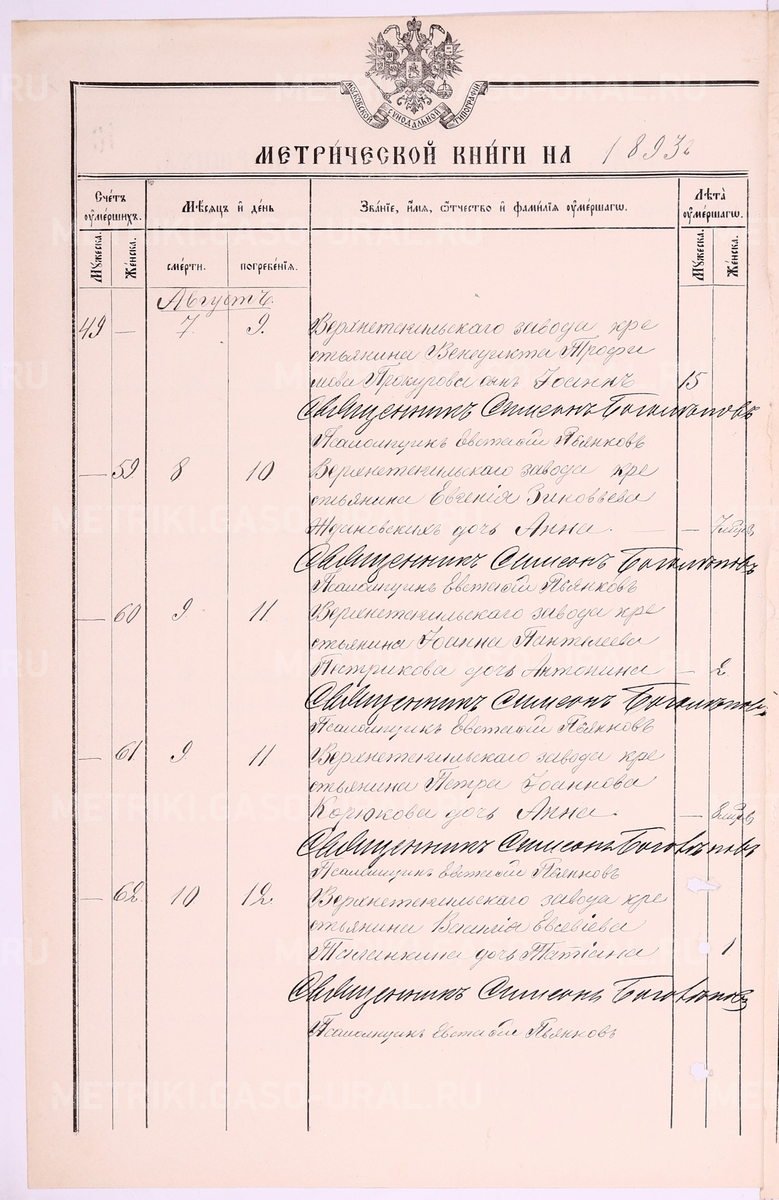 МОСКОВСКОЙ СУНОДАЛЬНОЙ ТИПОГРАФІИ
МЕТРИ́ЧЕСКОЙ КНИ́ГИ НА 1893 г
Сче́тъ ѹме́ршихъ. Мѣ́сяцъ и де́нь Зва́ніе, и́мя, ѻ́тчество и фами́лія ѹме́ршагѡ. Лѣта̀ ѹме́ршагѡ.
Мꙋ́жеска. Же́нска. сме́рти. погребе́нія. Мꙋ́жеска. Же́нска.
Августъ.
49 — 7 9. Верхнетагильскаго завода кре
стьянина Венедикта Трофи
мова сынъ Іоаннъ 15
Священникъ Симеонъ Богомоловъ
Псаломщикъ Евстафій Пьянковъ
— 59 8 10 Верхнетагильскаго завода кре
стьянина Евгенія Зиновьева
Ждановскихъ дочь Анна. — —
Священникъ Симеонъ Богомоловъ
Псаломщикъ Евстафій Пьянковъ
— 60 9. 11 Верхнетагильскаго завода кре
стьянина Іоанна Пантелеева
Пестрикова дочь Антонина — 2.
Священникъ Симеонъ Богомоловъ
Псаломщикъ Евстафій Пьянковъ
— 61 9. 11 Верхнетагильскаго завода кре
стьянина Петра Іоаннова
Кочюкова дочь Анна. —
Священникъ Симеонъ Богомоловъ
Псаломщикъ Евстафій Пьянковъ
— 62. 10 12 Верхнетагильскаго завода кре
стьянина Василія Евсевіева
дочь Татіана 1
Священникъ Симеонъ Богомоловъ
Псаломщикъ Евстафій Пьянковъ
METRIKI.GASO-URAL.RU